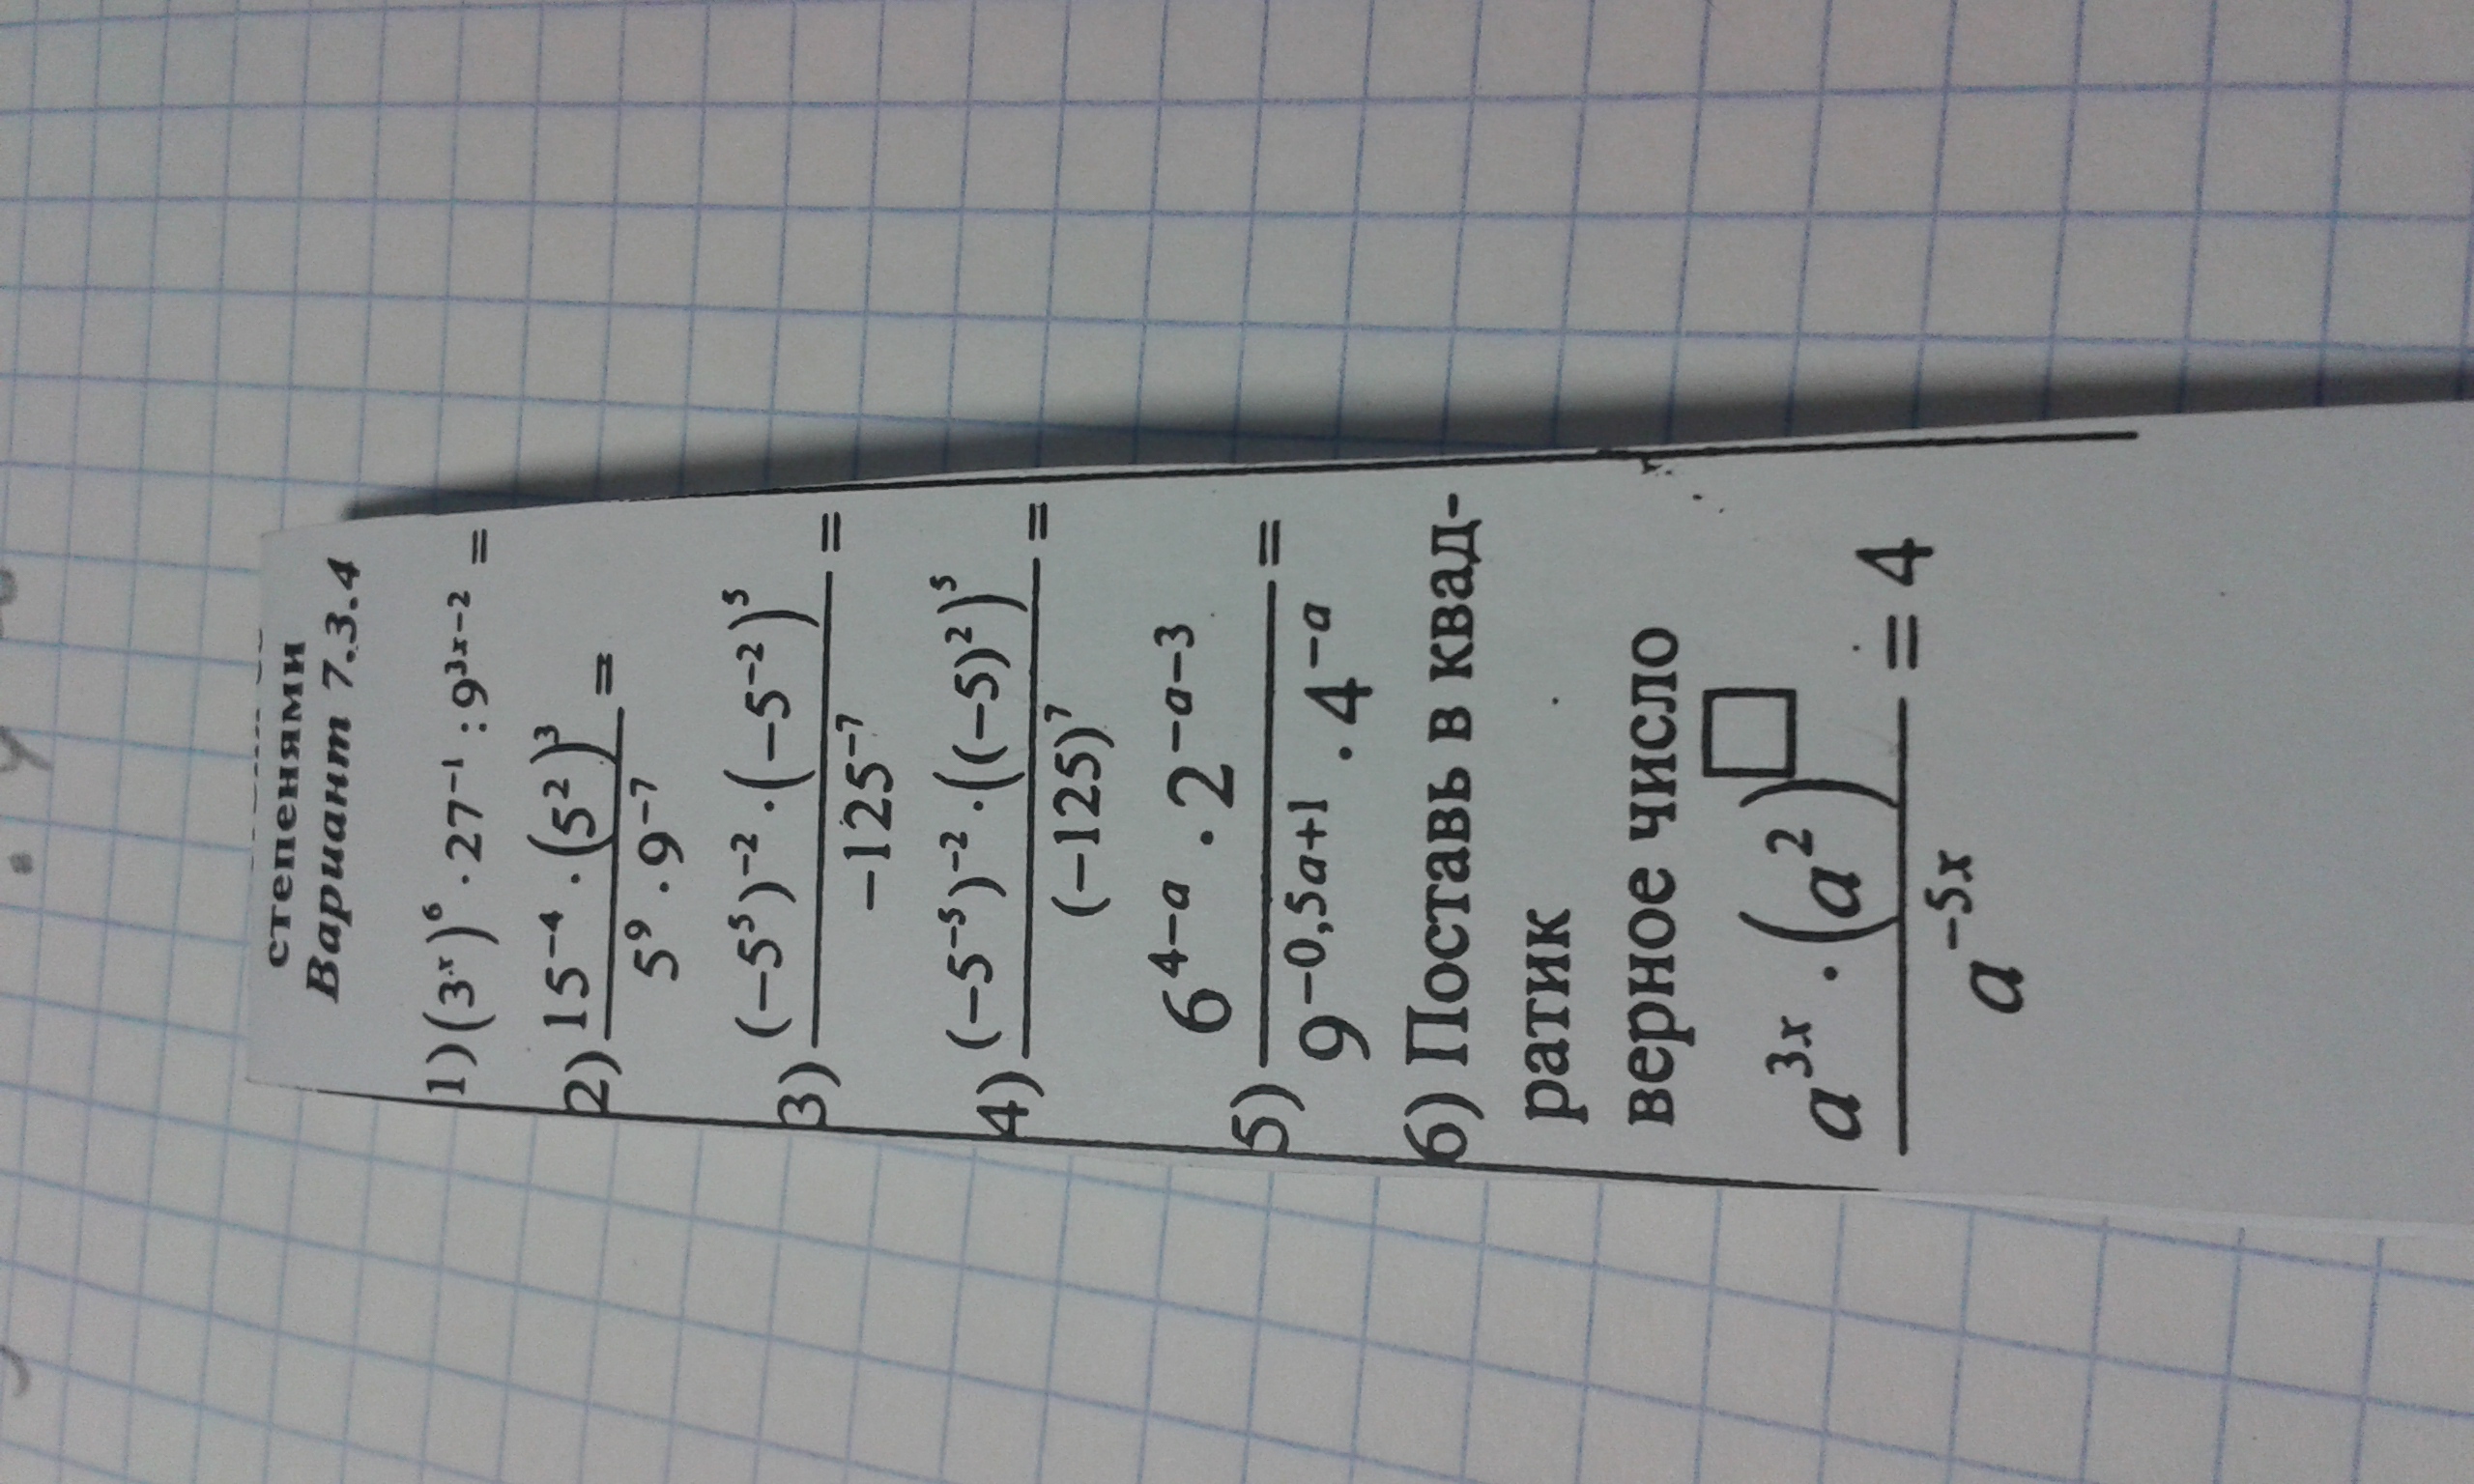 степенями
Вариант 7.3.4
1) (3ˣ)⁶ · 27⁻¹ : 9³ˣ⁻² =
2) 15⁻⁴ · (5²)³ / 5⁹ · 9⁻⁷ =
3) (−5⁵)⁻² · (−5⁻²)⁵ / −125⁻⁷ =
4) (−5⁻⁵)⁻² · ((−5)²)⁵ / (−125)⁷ =
5) 6⁴⁻ᵃ · 2⁻ᵃ⁻³ / 9^(−0,5a+1) · 4⁻ᵃ =
6) Поставь в квад-
ратик
верное число
a³ˣ · (a²)^□ / a⁻⁵ˣ = 4